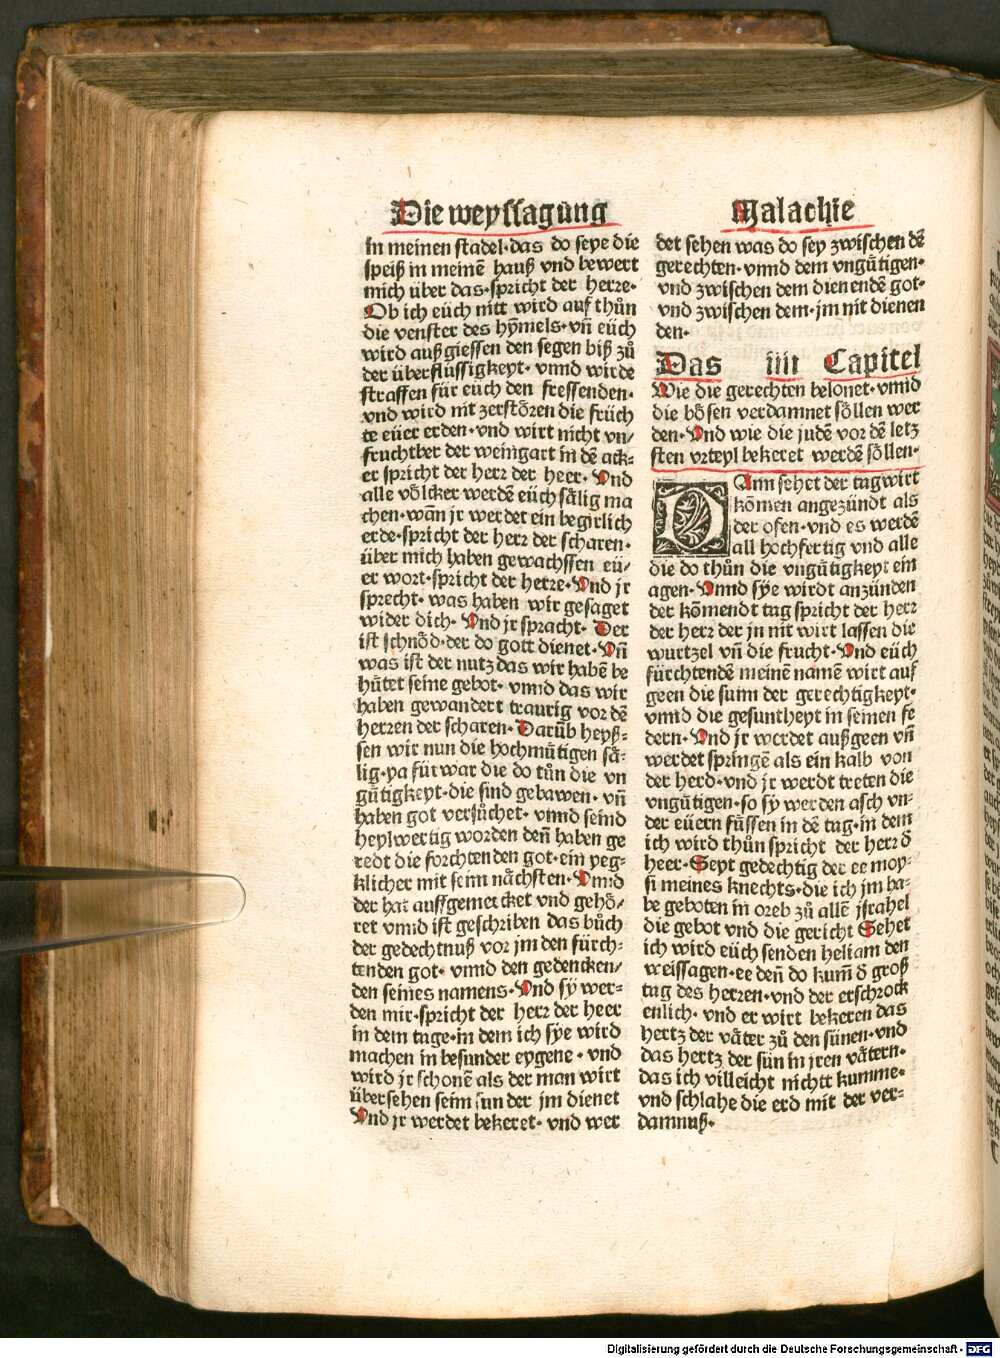 Die weyssagung
in meinen stadel·das do seye die
speiß in meinē hauß vnd bewert
mich über das·spricht der herre·
Ob ich eüch nitt wird auf thůn
die venster des hymels·vn̄ eüch
wird außgiessen den segen biß zů
der überflüssigkeyt·vnnd wirde
straffen für euch den fressenden·
vnd wird nit zerstören die früch
te eüer erden·vnd wirt nicht vn/
fruchtber der weingart in dē ack⸗
er spricht der herr der heer·Vnd
alle völcker werdē eüch sälig ma
chen·wān jr werdet ein begirlich
erde·spricht der herr der scharen·
über mich haben gewachssen eü/
er wort·spricht der herre·Vnd jr
sprecht·was haben wir gesaget
wider dich·Vnd jr spracht·Der
ist schnöd·der do gott dienet·Vn̄
was ist der nutz das wir habē be
hütet seine gebot·vnnd das wir
haben gewandert traurig vor dē
herren der scharen·Darūb heyß⸗
sen wir nun die hochmütigen sä⸗
lig·ya fürwar die do tůn die vn
gütigkeyt·die sind gebawen·vn̄
haben got versůchet·vnnd seind
heylwertig worden den̄ haben ge
redt die forchtenden got·ein yeg⸗
klicher mit seim nächsten·Vnnd
der hat auffgemercket vnd gehö/
ret vnnd ist geschriben das bůch
der gedechtnuß vor jm den fürch⸗
tenden got·vnnd den gedencken/
den seines namens·Vnd sy wer⸗
den mir·spricht der herr der heer
in dem tage·in dem ich sye wird
machen in besunder eygene·vnd
wird jr schonē als der man wirt
übersehen seim sun der jm dienet
Vnd jr werdet bekeret·vnd wer
Malachie
det sehen was do sey zwischen dē
gerechten·vnnd dem vngütigen·
vnd zwischen dem dienendē got·
vnd zwischen dem·jm nit dienen
den·
Das iiii Capitel
Wie die gerechten belonet·vnnd
die bösen verdamnet söllen wer
den·Vnd wie die judē vor dē letz
sten vrteyl bekeret werdē söllen·
DAnn sehet der tag wirt
kōmen angezündt als
der ofen·vnd es werdē
all hochfertig vnd alle
die do thůn die vngütigkeyt ein
agen·Vnnd sye wirdt anzünden
der kōmendt tag spricht der herr
der herr der jn nit wirt lassen die
wurtzel vn̄ die frucht·Vnd eüch
fürchtendē meinē namē wirt auf
geen die sunn der gerechtigkeyt·
vnnd die gesuntheyt in seinen fe
dern·Vnd jr werdet außgeen vn̄
werdet springē als ein kalb von
der herd·vnd jr werdt treten die
vngütigen·so sy werden asch vn⸗
der eüern füssen in dē tag·in dem
ich wird thůn spricht der herr d̄
heer·Seyt gedechtig der ee moy⸗
si meines knechts·die ich jm ha⸗
be geboten in oreb zů allē jsrahel
die gebot vnd die gericht Sehet
ich wird eüch senden heliam den
weissagen·ee den̄ do kum̄ d̄ groß
tag des herren·vnd der erschrock
enlich·vnd er wirt bekeren das
hertz der väter zů den sünen·vnd
das hertz der sün in jren vätern·
das ich villeicht nichtt kumme·
vnd schlahe die erd mit der ver⸗
damnuß·
Digitalisierung gefördert durch die Deutsche Forschungsgemeinschaft - DFG